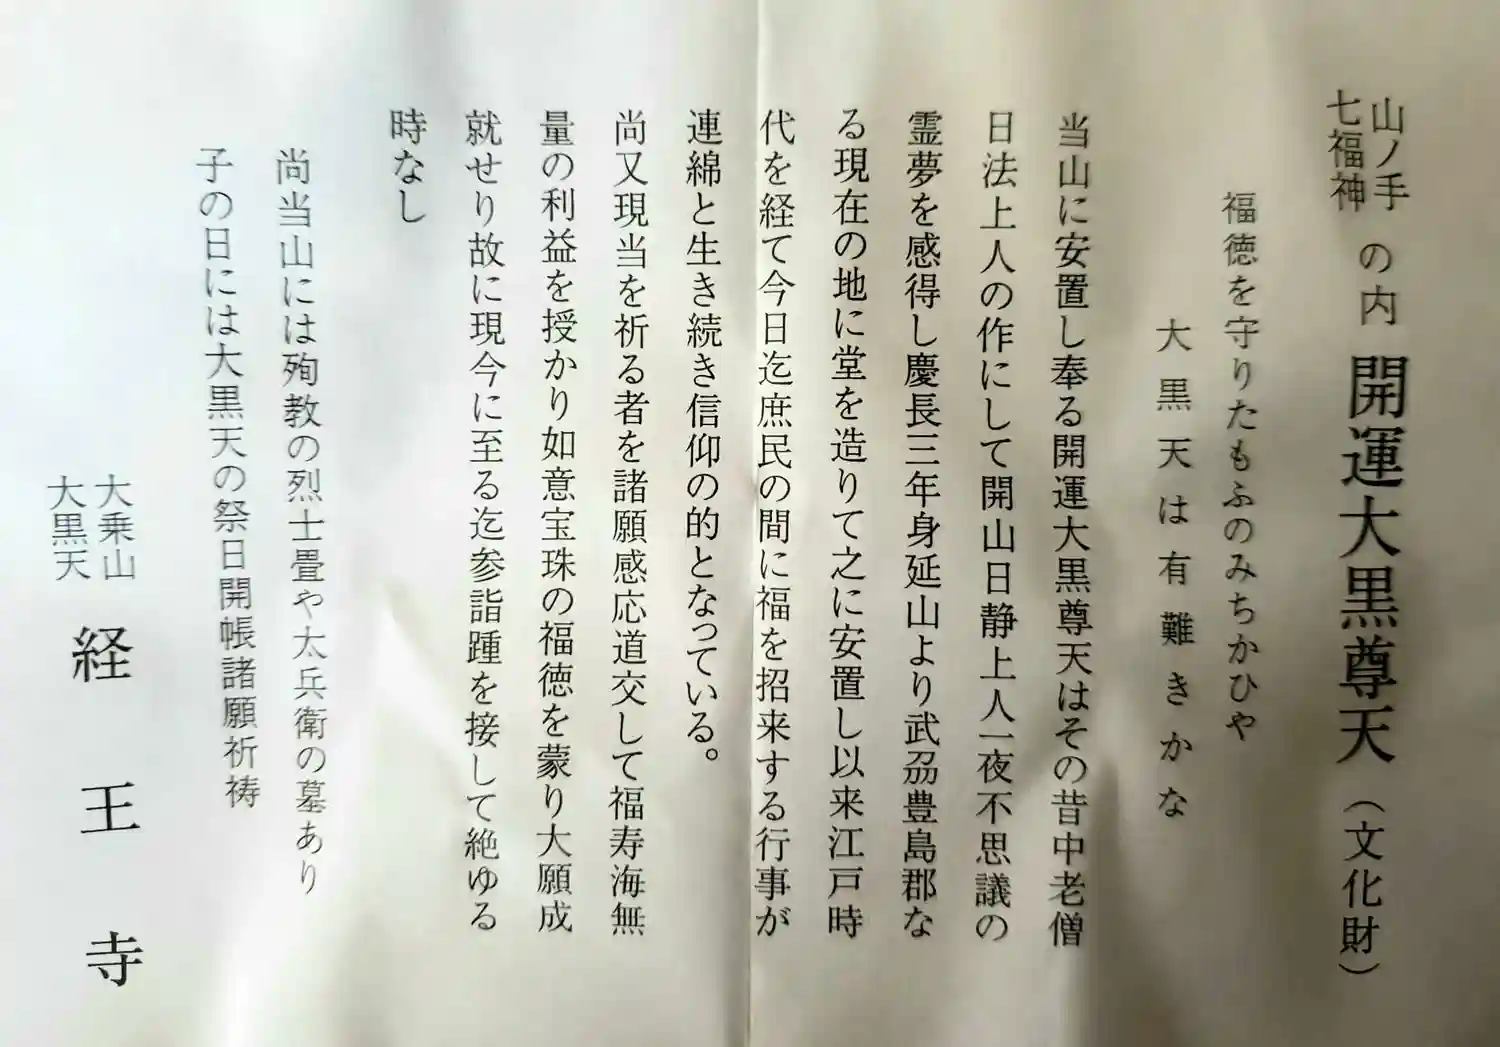 山ノ手
七福神
の内 開運大黒尊天（文化財）
福徳を守りたもふのみちかひや
大黒天は有難きかな
当山に安置し奉る開運大黒尊天はその昔中老僧
日法上人の作にして開山日静上人一夜不思議の
霊夢を感得し慶長三年身延山より武刕豊島郡な
る現在の地に堂を造りて之に安置し以来江戸時
代を経て今日迄庶民の間に福を招来する行事が
連綿と生き続き信仰の的となっている。
尚又現当を祈る者を諸願感応道交して福寿海無
量の利益を授かり如意宝珠の福徳を蒙り大願成
就せり故に現今に至る迄参詣踵を接して絶ゆる
時なし
尚当山には殉教の烈士畳や太兵衛の墓あり
子の日には大黒天の祭日開帳諸願祈祷
大乗山
大黒天
経王寺